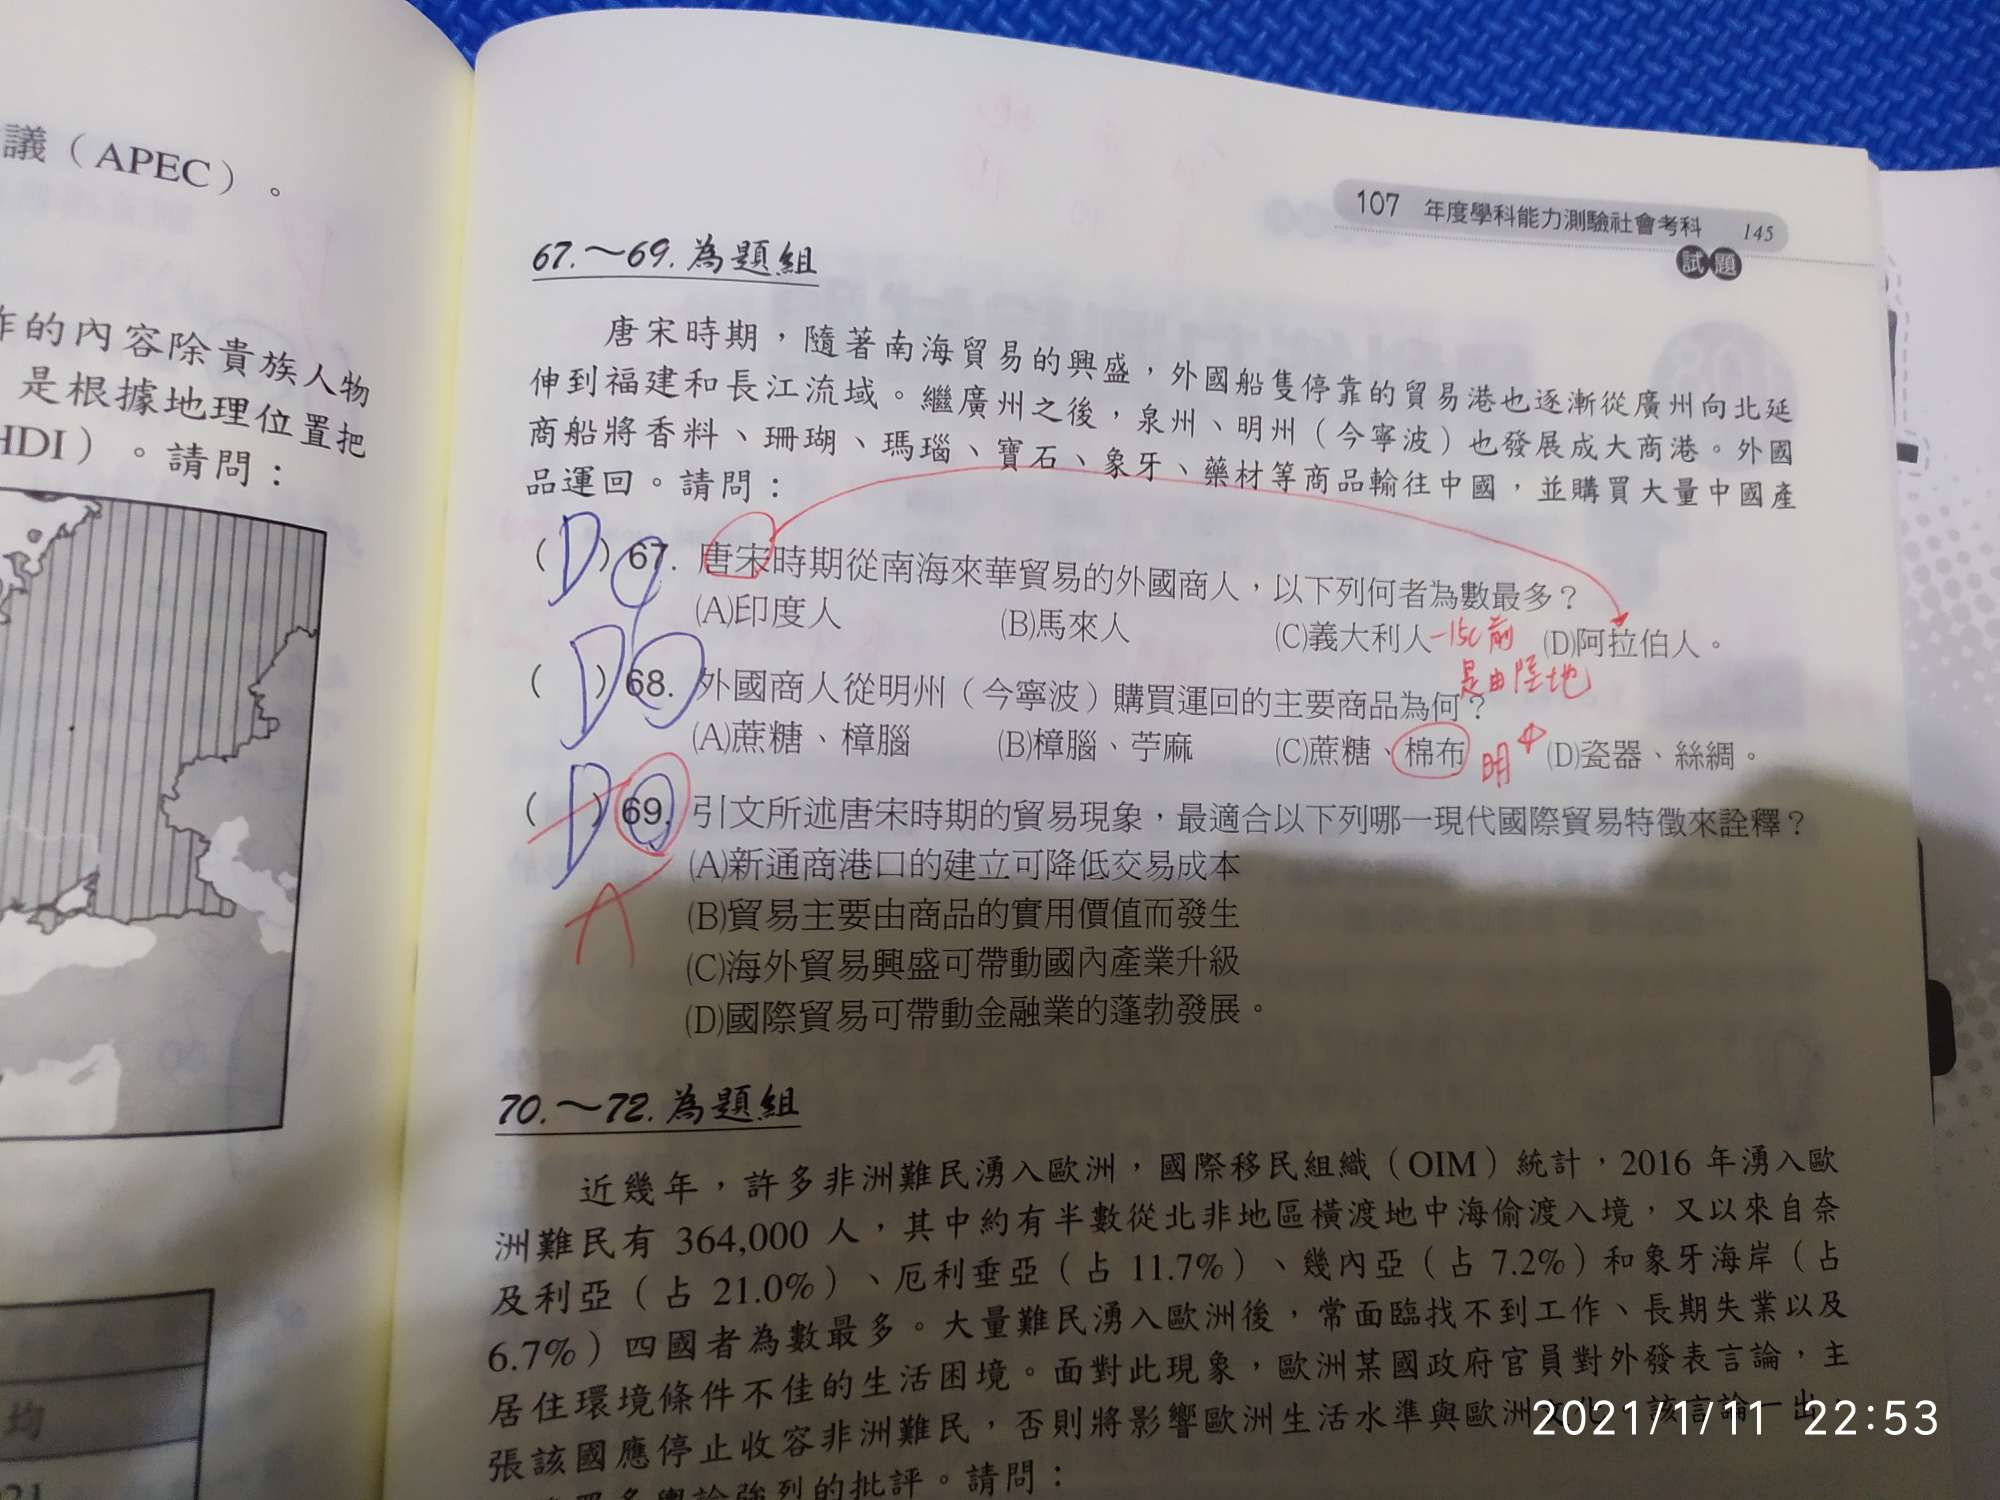 議（APEC）。
作的內容除貴族人物
是根據地理位置把
HDI）。請問：
均
107 年度學科能力測驗社會考科 145
試題
67.～69.為題組
唐宋時期，隨著南海貿易的興盛，外國船隻停靠的貿易港也逐漸從廣州向北延
伸到福建和長江流域。繼廣州之後，泉州、明州（今寧波）也發展成大商港。外國
商船將香料、珊瑚、瑪瑙、寶石、象牙、藥材等商品輸往中國，並購買大量中國產
品運回。請問：
（D）67. 唐宋時期從南海來華貿易的外國商人，以下列何者為數最多？
(A)印度人 (B)馬來人 (C)義大利人 -15C前 (D)阿拉伯人。
是由陸地
（D）68. 外國商人從明州（今寧波）購買運回的主要商品為何？
(A)蔗糖、樟腦 (B)樟腦、苧麻 (C)蔗糖、棉布 明 (D)瓷器、絲綢。
（D）69. 引文所述唐宋時期的貿易現象，最適合以下列哪一現代國際貿易特徵來詮釋？
A
(A)新通商港口的建立可降低交易成本
(B)貿易主要由商品的實用價值而發生
(C)海外貿易興盛可帶動國內產業升級
(D)國際貿易可帶動金融業的蓬勃發展。
70.～72.為題組
近幾年，許多非洲難民湧入歐洲，國際移民組織（OIM）統計，2016 年湧入歐
洲難民有 364,000 人，其中約有半數從北非地區橫渡地中海偷渡入境，又以來自奈
及利亞（占 21.0%）、厄利垂亞（占 11.7%）、幾內亞（占 7.2%）和象牙海岸（占
6.7%）四國者為數最多。大量難民湧入歐洲後，常面臨找不到工作、長期失業以及
居住環境條件不佳的生活困境。面對此現象，歐洲某國政府官員對外發表言論，主
張該國應停止收容非洲難民，否則將影響歐洲生活水準與歐洲文化。該言論一出，
強烈的批評。請問：
2021/1/11 22:53